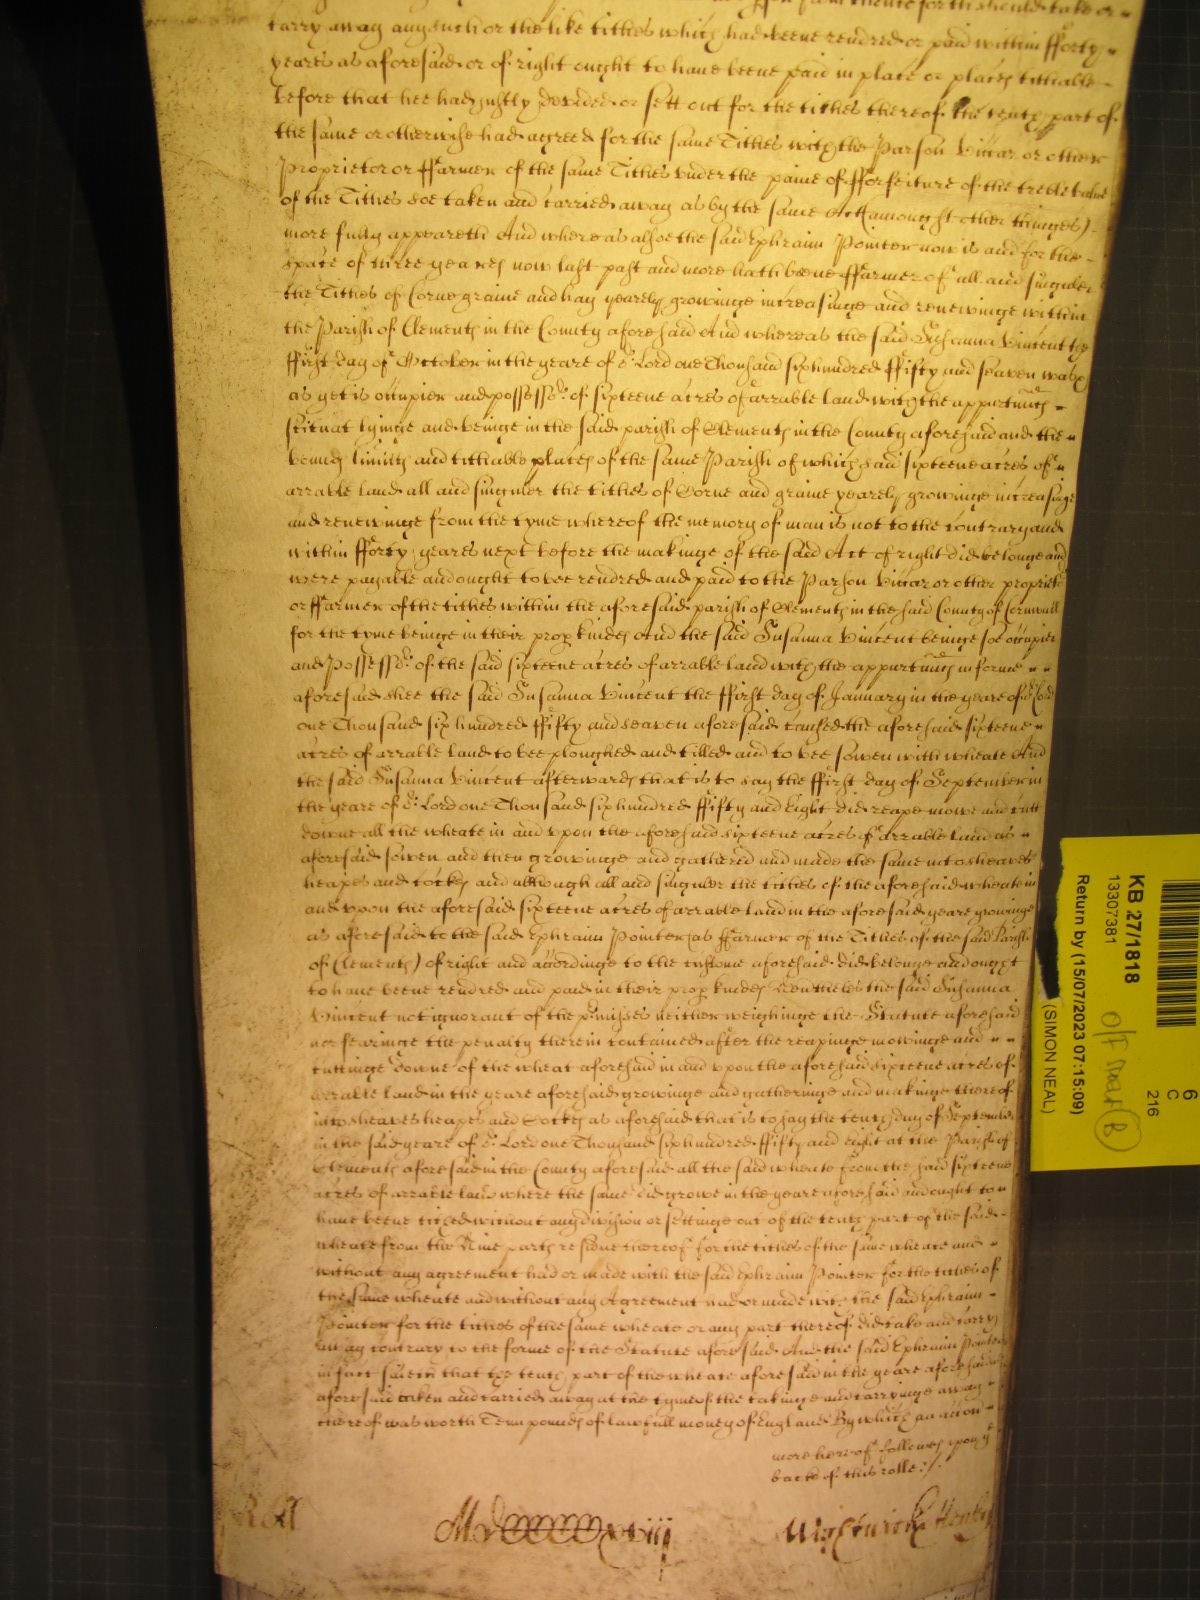 from thence forth should take or
carry away any such or the like tithes which had beene rendred or paid within fforty
yeares as aforesaid or of right ought to have beene paid in place or places titheable
before that hee had justly devided or sett out for the tithes thereof the tenth part of
the same or otherwise had agreed for the same Tithes with the Parson Viccar or other
Proprietor or ffarmer of the same Tithes vnder the paine of fforfeiture of the treble value
of the Tithes soe taken and carried away as by the same Act (amongst other things)
more fully appeareth And whereas alsoe the said Ephraim Pointer now is and for the
space of three yeares now last past and more hath beene ffarmer of all and singuler
the Tithes of Corne graine and hay yearely growinge increasinge and renewinge within
the Parish of Clements in the County aforesaid And whereas the said Susanna Vincent the
ffirst day of October in the yeare of or Lord one Thousand six hundred ffifty and seaven was
as yet is occupier and possessor of sixteene acres of arrable land with the appurtnncs
scituat lyinge and beinge in the said parish of Clements in the County aforesaid and the
bounds limitts and titheable places of the same Parish of which said sixteene acres of
arrable land all and singuler the tithes of Corne and graine yearely growinge increasinge
and renewinge from the tyme whereof the memory of man is not to the contrary and
within fforty yeares next before the makinge of the said Act of right did belonge and
were payable and ought to bee rendred and paid to the Parson Viccar or other proprieto
or ffarmer of the tithes within the aforesaid parish of Clements in the said County of Cornwall
for the tyme beinge in their prop kindes And the said Susanna Vincent beinge soe occupier
and Possessor of the said sixteene acres of arrable land with the appurtnncs in forme
aforesaid shee the said Susanna Vincent the ffirst day of January in the yeare of or Lord
one Thousand six hundred ffifty and seaven aforesaid caused the aforesaid sixteene
acres of arrable land to bee ploughed and tilled and to bee sowen with wheate And
the said Susanna Vincent afterwards that is to say the ffirst day of September in
the yeare of or Lord one Thousand six hundred ffifty and Eight did reape mowe and cutt
downe all the wheate in and vpon the aforesaid sixteene acres of arrable land as
aforesaid sowen and then growinge and gathered and made the same into sheaves
heapes and cockes and although all and singuler the tithes of the aforesaid wheate in
and vpon the aforesaid sixteene acres of arrable land in the aforesaid yeare growinge
as aforesaid to the said Ephraim Pointer (as ffarmer of the Tithes of the said Parish
of Clements) of right and accordinge to the custome aforesaid did belonge and ought
to have beene rendred and paid in their prop kindes Neverthelesse the said Susanna
Vincent not ignorant of the pmisses neither weighinge the Statute aforesaid
nor fearinge the penalty therein contained after the reapinge mowinge and
cuttinge downe of the wheat aforesaid in and vpon the aforesaid sixteene acres of
arrable land in the yeare aforesaid growinge and gatheringe and makinge thereof
into sheaves heapes and Cockes as aforesaid that is to say the tenth day of September
in the said yeare of or Lord one Thousand six hundred ffifty and eight at the Parish of
Clements aforesaid in the County aforesaid all the said wheate from the said sixteene
acres of arrable land where the same did growe in the yeare aforesaid and ought to
have beene tithed without any division or settinge out of the tenth part of the said
wheate from the Nine parts residue thereof for the tithes of the same wheate and
without any agreement had or made with the said Ephraim Pointer for the tithes of
the same wheate and without any Agreement had or made with the said Ephraim
Pointer for the tithes of the same wheate or any part thereof did take and carry
away contrary to the forme of the Statute aforesaid And the said Ephraim Pointer
in fact saieth that the tenth part of the wheate aforesaid in the yeare aforesaid
aforesaid taken and carried away at the tyme of the takinge and carryinge away
thereof was worth Tenn pounds of lawfull money of England By which an accon
more hereof followes vpon ye
back of this rolle :/.
Roll
Wightwicke Henly
6
C
216
KB 27/1818
13307381
Return by (15/07/2023 07:15:09)
(SIMON NEAL)